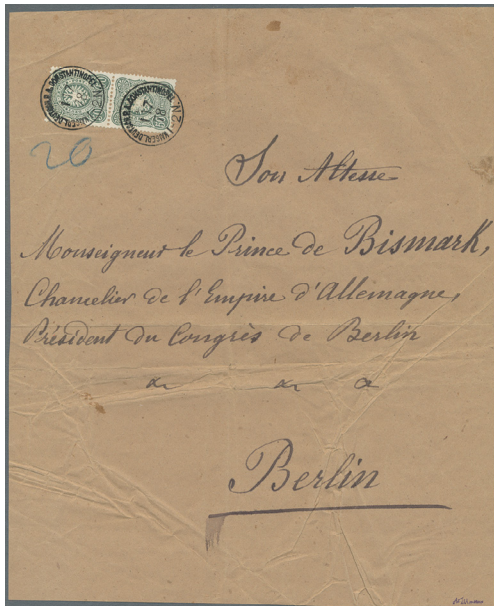 KAISERL. DEUTSCH. P. A. CONSTANTINOPEL
1-2 N.
20
Son Altesse
Monseigneur le Prince de Bismark,
Chancelier de l'Empire d'Allemagne,
Président du Congrès de Berlin
a a a
Berlin